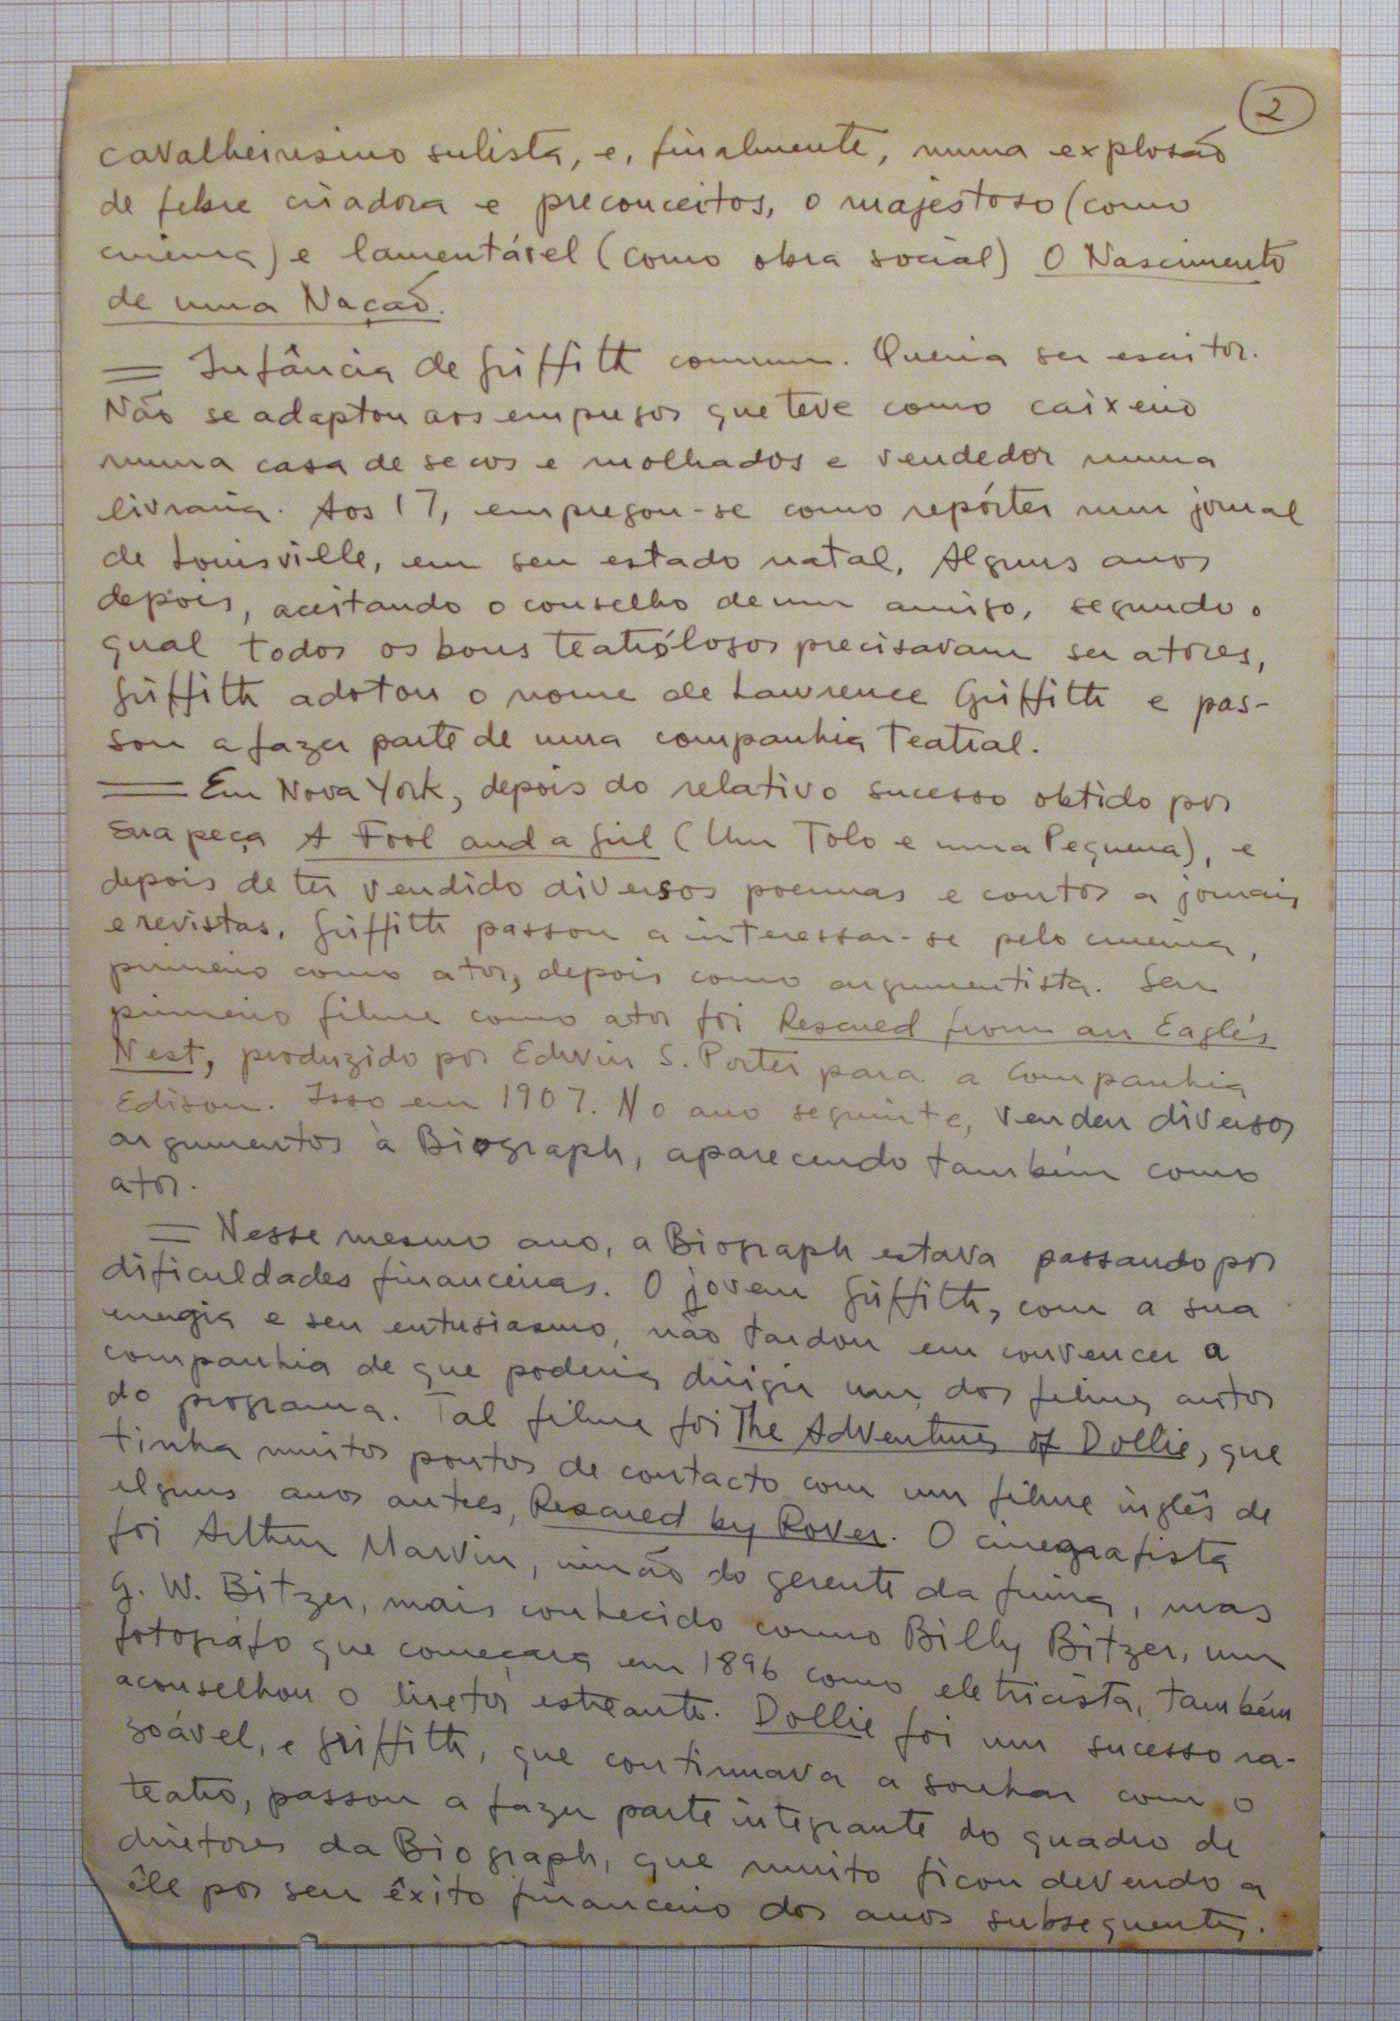 2
cavalheirismo sulista, e, finalmente, numa explosão
de febre criadora e preconceitos, o majestoso (como
cinema) e lamentável (como obra social) O Nascimento
de uma Nação.
= Infância de Griffith comum. Queria ser escritor.
Não se adaptou aos empregos que teve como caixeiro
numa casa de secos e molhados e vendedor numa
livraria. Aos 17, empregou-se como repórter num jornal
de Louisville, em seu estado natal. Alguns anos
depois, aceitando o conselho de um amigo, segundo o
qual todos os bons teatrólogos precisavam ser atores,
Griffith adotou o nome de Lawrence Griffith e pas-
sou a fazer parte de uma companhia teatral.
= Em Nova York, depois do relativo sucesso obtido por
sua peça A Fool and a Girl (Um Tolo e uma Pequena), e
depois de ter vendido diversos poemas e contos a jornais
e revistas, Griffith passou a interessar-se pelo cinema,
primeiro como ator, depois como argumentista. Seu
primeiro filme como ator foi Rescued from an Eagle's
Nest, produzido por Edwin S. Porter para a Companhia
Edison. Isso em 1907. No ano seguinte, vendeu diversos
argumentos à Biograph, aparecendo também como
ator.
= Nesse mesmo ano, a Biograph estava passando por
dificuldades financeiras. O jovem Griffith, com a sua
energia e seu entusiasmo, não tardou em convencer a
companhia de que poderia dirigir um dos filmes curtos
do programa. Tal filme foi The Adventures of Dollie, que
tinha muitos pontos de contacto com um filme inglês de
alguns anos antes, Rescued by Rover. O cinegrafista
foi Arthur Marvin, irmão do gerente da firma, mas
G. W. Bitzer, mais conhecido como Billy Bitzer, um
fotógrafo que começara em 1896 como eletricista, também
aconselhou o diretor estreante. Dollie foi um sucesso ra-
zoável, e Griffith, que continuava a sonhar com o
teatro, passou a fazer parte integrante do quadro de
diretores da Biograph, que muito ficou devendo a
êle por seu êxito financeiro dos anos subsequentes.